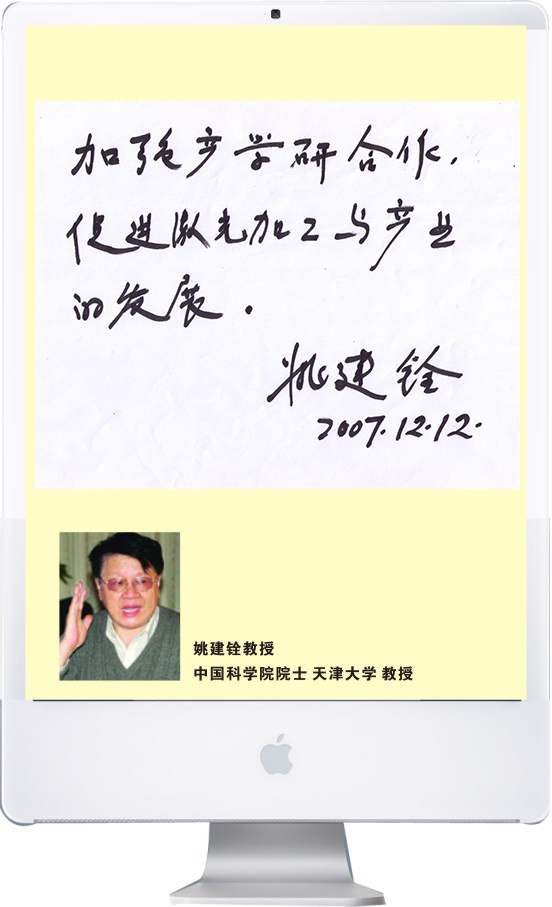 加强产学研合作，
促进激光加工与产业
的发展。
姚建铨
2007.12.12.
姚建铨教授
中国科学院院士 天津大学 教授